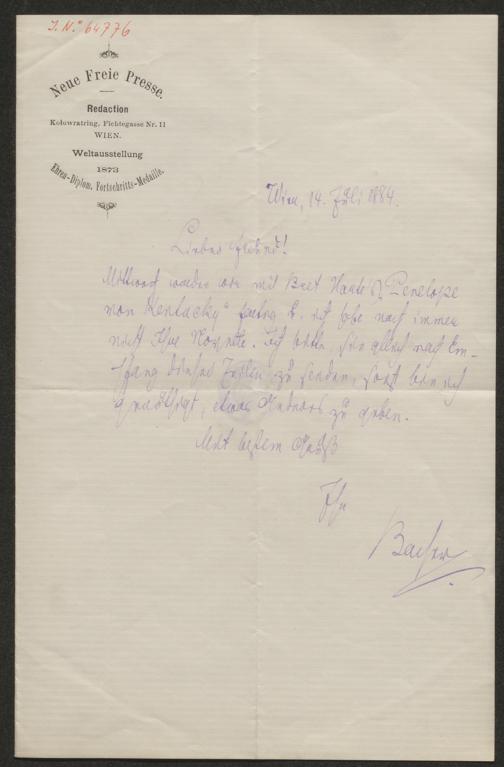 J.N. 64776
Neue Freie Presse.
Redaction
Kolowratring, Fichtegasse Nr. 11
WIEN.
Weltausstellung
1873
Ehren-Diplom. Fortschritts-Medaille.
Wien, 14. Juli 1884.
Lieber Freund!
Mittwoch werden wir mit Bret Harte's „Penelope
von Kentucky“ fertig u. ich habe noch immer
nicht Ihre Novelle. Ich bitte, sie gleich nach Em-
pfang dieser Zeilen zu senden, sonst bin ich
genöthigt, etwas Anderes zu geben.
Mit bestem Gruß
Ihr
Bacher